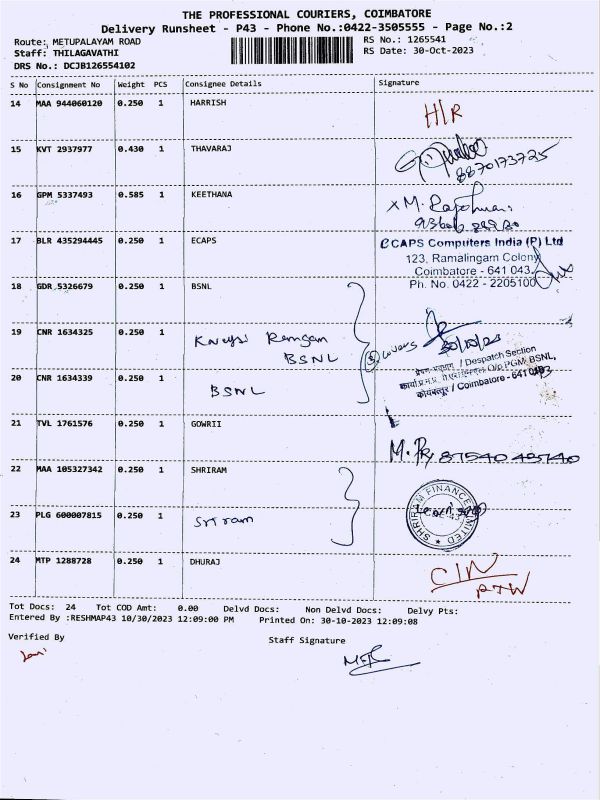 THE PROFESSIONAL COURIERS, COIMBATORE
Delivery Runsheet - P43 - Phone No.:0422-3505555 - Page No.:2
Route: METUPALAYAM ROAD RS No.: 1265541
Staff: THILAGAVATHI RS Date: 30-Oct-2023
DRS No.: DCJB126554102
S No Consignment No Weight PCS Consignee Details Signature
14 MAA 944060120 0.250 1 HARRISH H/R
15 KVT 2937977 0.430 1 THAVARAJ
8870173725
16 GPM 5337493 0.585 1 KEETHANA
17 BLR 435294445 0.250 1 ECAPS
eCAPS Computers India (P) Ltd
123, Ramalingam Colony
Coimbatore - 641 043.
Ph. No. 0422 - 2205100
18 GDR 5326679 0.250 1 BSNL
19 CNR 1634325 0.250 1
BSNL
③ covers
30/10/23
प्रेषण अनुभाग / Despatch Section
O/o PGM BSNL,
कोयंबत्तूर / Coimbatore - 641 043
20 CNR 1634339 0.250 1 BSNL
21 TVL 1761576 0.250 1 GOWRII
22 MAA 105327342 0.250 1 SHRIRAM
SHRIRAM FINANCE LIMITED
23 PLG 600007815 0.250 1 Sriram
24 MTP 1288728 0.250 1 DHURAJ
Tot Docs: 24 Tot COD Amt: 0.00 Delvd Docs: Non Delvd Docs: Delvy Pts:
Entered By :RESHMAP43 10/30/2023 12:09:00 PM Printed On: 30-10-2023 12:09:08
Verified By Staff Signature